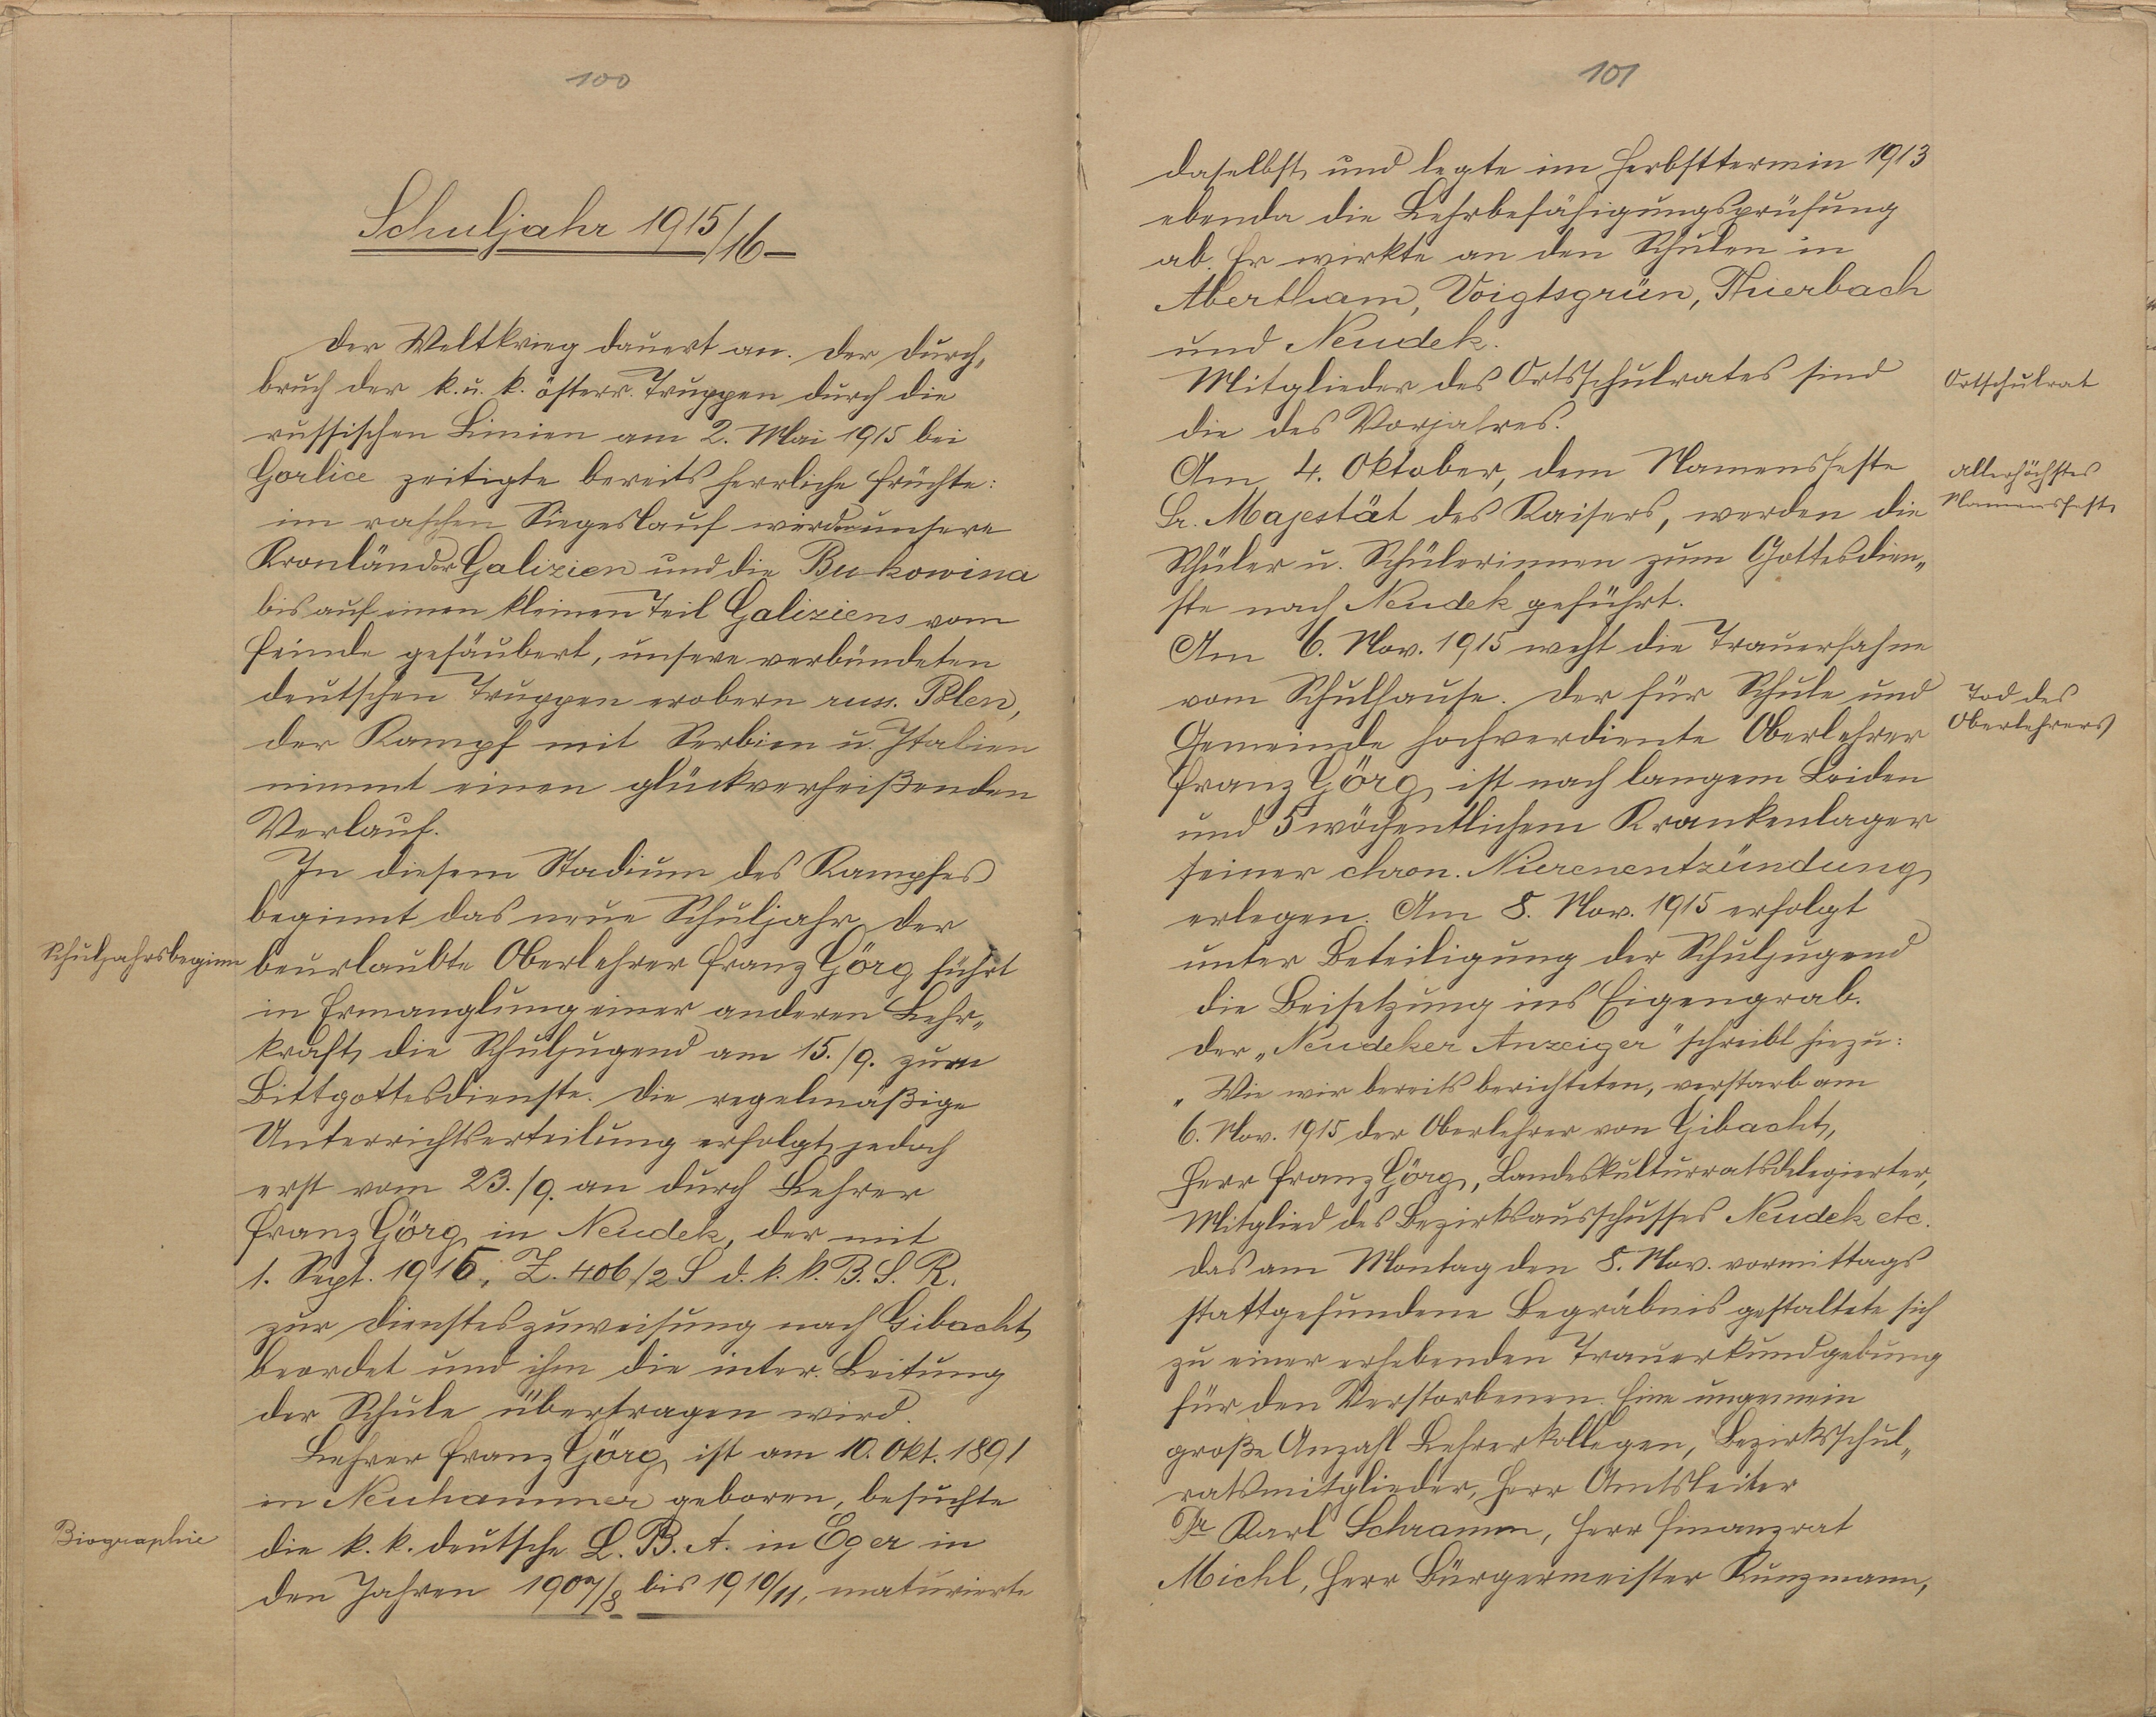 100
Schuljahr 1915/16
Der Weltkrieg dauert an. Der Durch„
bruch der k. u. k. österr. Truppen durch die
russischen Linien am 2. Mai 1915 bei
Gorlice zeitigte bereits herrliche Früchte:
im raschen Siegeslauf werden unsere
Kronländer Galizien und die Bukowina
bis auf einen kleinen Teil Galiziens vom
Feinde gesäubert, unsere verbündeten
deutschen Truppen erobern russ. Polen,
der Kampf mit Serbien u. Italien
nimmt einen glückverheißenden
Verlauf.
In diesem Stadium des Kampfes
beginnt das neue Schuljahr. Der
Schuljahrsbeginn
beurlaubte Oberlehrer Franz Görg führt
in Ermanglung einer anderen Lehr„
kraft die Schuljugend am 15./9. zum
Bittgottesdienste. Die regelmäßige
Unterrichtserteilung erfolgt jedoch
erst vom 23./9. an durch Lehrer
Franz Görg in Neudek, der mit
1. Sept. 1915, Z. 406/2 S d. k. k. B. S. R.
zur Dienstleszuweisung nach Gibacht
beordet und ihm die inter. Leitung
der Schule übertragen wird.
Lehrer Franz Görg ist am 10. Okt. 1891
in Neuhammer geboren, besuchte
Biographie
die k. k. deutsche L. B. A. in Eger in
den Jahren 1907/8 bis 1910/11, maturierte
101
daselbst und legte im Herbsttermin 1913
ebenda die Lehrbefähigungsprüfung
ab. Er wirkte an den Schulen in
Abertham, Voigtsgrün, Thierbach
und Neudek.
Mitglieder des Ortsschulrates sind
Ortschulrat
die des Vorjahres.
Am 4. Oktober, dem Namensfeste
allerhöchstes
Namensfest
Sr. Majestät des Kaisers, werden die
Schüler u. Schülerinnen zum Gottesdien„
ste nach Neudek geführt.
Am 6. Nov. 1915 weht die Trauerfahne
vom Schulhause. Der für Schule und
Tod des
Oberlehrers
Gemeinde hochverdiente Oberlehrer
Franz Görg ist nach langem Leiden
und 5 wöchentlichem Krankenlager
seiner chron. Nierenentzündung
erlegen. Am 8. Nov. 1915 erfolgt
unter Beteiligung der Schuljugend
die Beisetzung ins Eigengrab.
Der „Neudeker Anzeiger" schreibt hiezu:
„Wie wir bereits berichteten, verstarb am
6. Nov. 1915 der Oberlehrer von Gibacht,
Herr Franz Görg, Landeskulturratsdelegierter,
Mitglied des Bezirksausschusses Neudek etc.
Das am Montag den 8. Nov. vormittags
stattgefundene Begräbnis gestaltete sich
zu einer erhebenden Trauerkundgebung
für den Verstorbenen. Eine ungemein
große Anzahl Lehrerkollegen, Bezirksschul„
ratsmitglieder, Herr Amtsleiter
Dr Karl Schramm, Herr Finanzrat
Michl, Herr Bürgermeister Kunzmann,